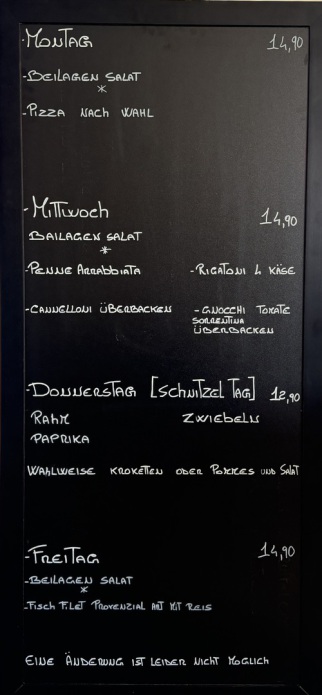 -Montag 14,90
-Beilagen Salat
*
-Pizza nach Wahl
-Mittwoch 14,90
Bailagen Salat
*
-Penne Arrabbiata -Rigatoni 4 Käse
-Cannelloni überbacken -Gnocchi Tomate
Sorrentina
überbacken
-Donnerstag [Schnitzel Tag] 12,90
Rahm Zwiebeln
Paprika
Wahlweise Kroketten oder Pommes und Salat
-Freitag 14,90
-Beilagen Salat
*
-Fisch Filet Provenzial Art mit Reis
Eine Änderung ist leider nicht moglich